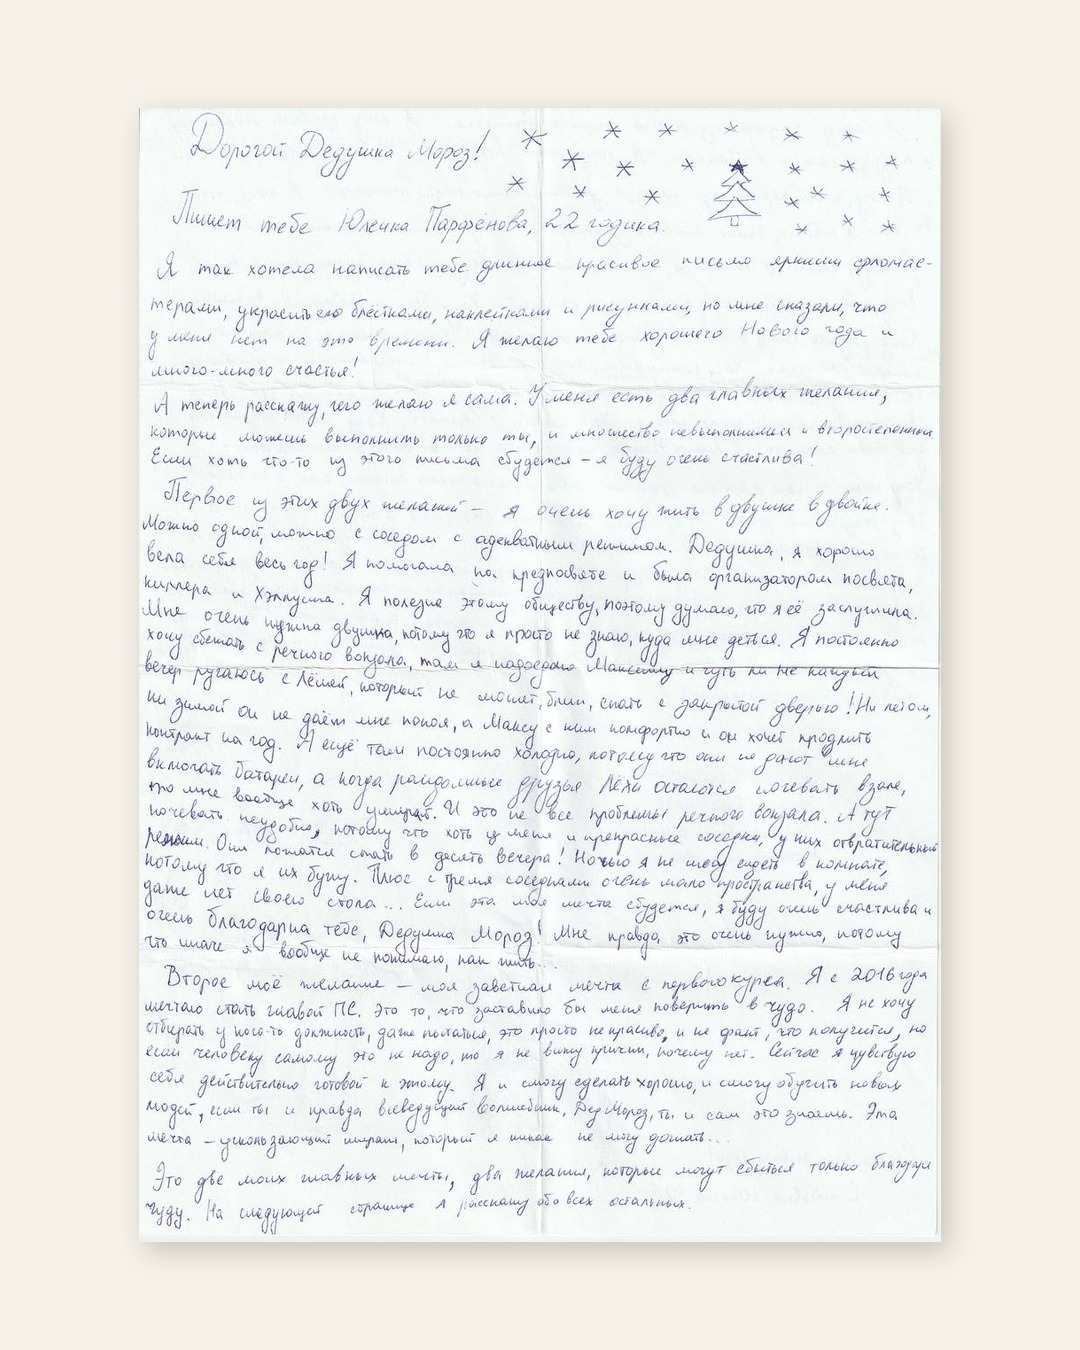 Дорогой Дедушка Мороз!
Пишет тебе Юлечка Парфёнова, 22 годика.
Я так хотела написать тебе длинное красивое письмо яркими фломас-
терами, украсить его блёстками, наклейками и рисунками, но мне сказали, что
у меня нет на это времени. Я желаю тебе хорошего Нового года и
много-много счастья!
А теперь расскажу, чего желаю я сама. У меня есть два главных желания,
которые можешь выполнить только ты, и множество невыполнимых и второстепенных.
Если хоть что-то из этого письма сбудется – я буду очень счастлива!
Первое из этих двух желаний – я очень хочу жить в двушке в двойке.
Можно одной, можно с соседом с адекватным режимом. Дедушка, я хорошо
вела себя весь год! Я помогала на предпосвяте и была организатором посвята,
киллера и Хэллуина. Я полезна этому обществу, поэтому думаю, что я её заслужила.
Мне очень нужна двушка, потому что я просто не знаю, куда мне деться. Я постоянно
хочу сбежать с речного вокзала, там я надоедаю Максиму и чуть ли не каждый
вечер ругаюсь с Лёшей, который не может, блин, спать с закрытой дверью! Ни летом,
ни зимой он не даёт мне покоя, а Максу с ним комфортно и он хочет продлить
контракт на год. А ещё там постоянно холодно, потому что они не дают мне
включать батареи, а когда рандомные друзья Лёхи остаются ночевать в зале,
то мне вообще хоть умирай. И это не все проблемы речного вокзала. А тут
ночевать неудобно, потому что хоть у меня и прекрасные соседки, у них отвратительный
режим. Они ложатся спать в десять вечера! Ночью я не могу сидеть в комнате,
потому что я их бужу. Плюс с тремя соседками очень мало пространства, у меня
даже нет своего стола... Если эта моя мечта сбудется, я буду очень счастлива и
очень благодарна тебе, Дедушка Мороз! Мне правда это очень нужно, потому
что иначе я вообще не понимаю, как жить...
Второе моё желание – моя заветная мечта с первого курса. Я с 2016 года
мечтаю стать главой ПС. Это то, что заставило бы меня поверить в чудо. Я не хочу
отбирать у кого-то должность, даже пытаться, это просто некрасиво, и не факт, что получится, но
если человеку самому это не надо, то я не вижу причин, почему нет. Сейчас я чувствую
себя действительно готовой к этому. Я и смогу сделать хорошо, и смогу обучить новых
людей, если ты и правда всеведущий волшебник, Дед Мороз, ты и сам это знаешь. Эта
мечта – ускользающий мираж, который я никак не могу догнать...
Это две моих главных мечты, два желания, которые могут сбыться только благодаря
чуду. На следующей странице я расскажу обо всех остальных.